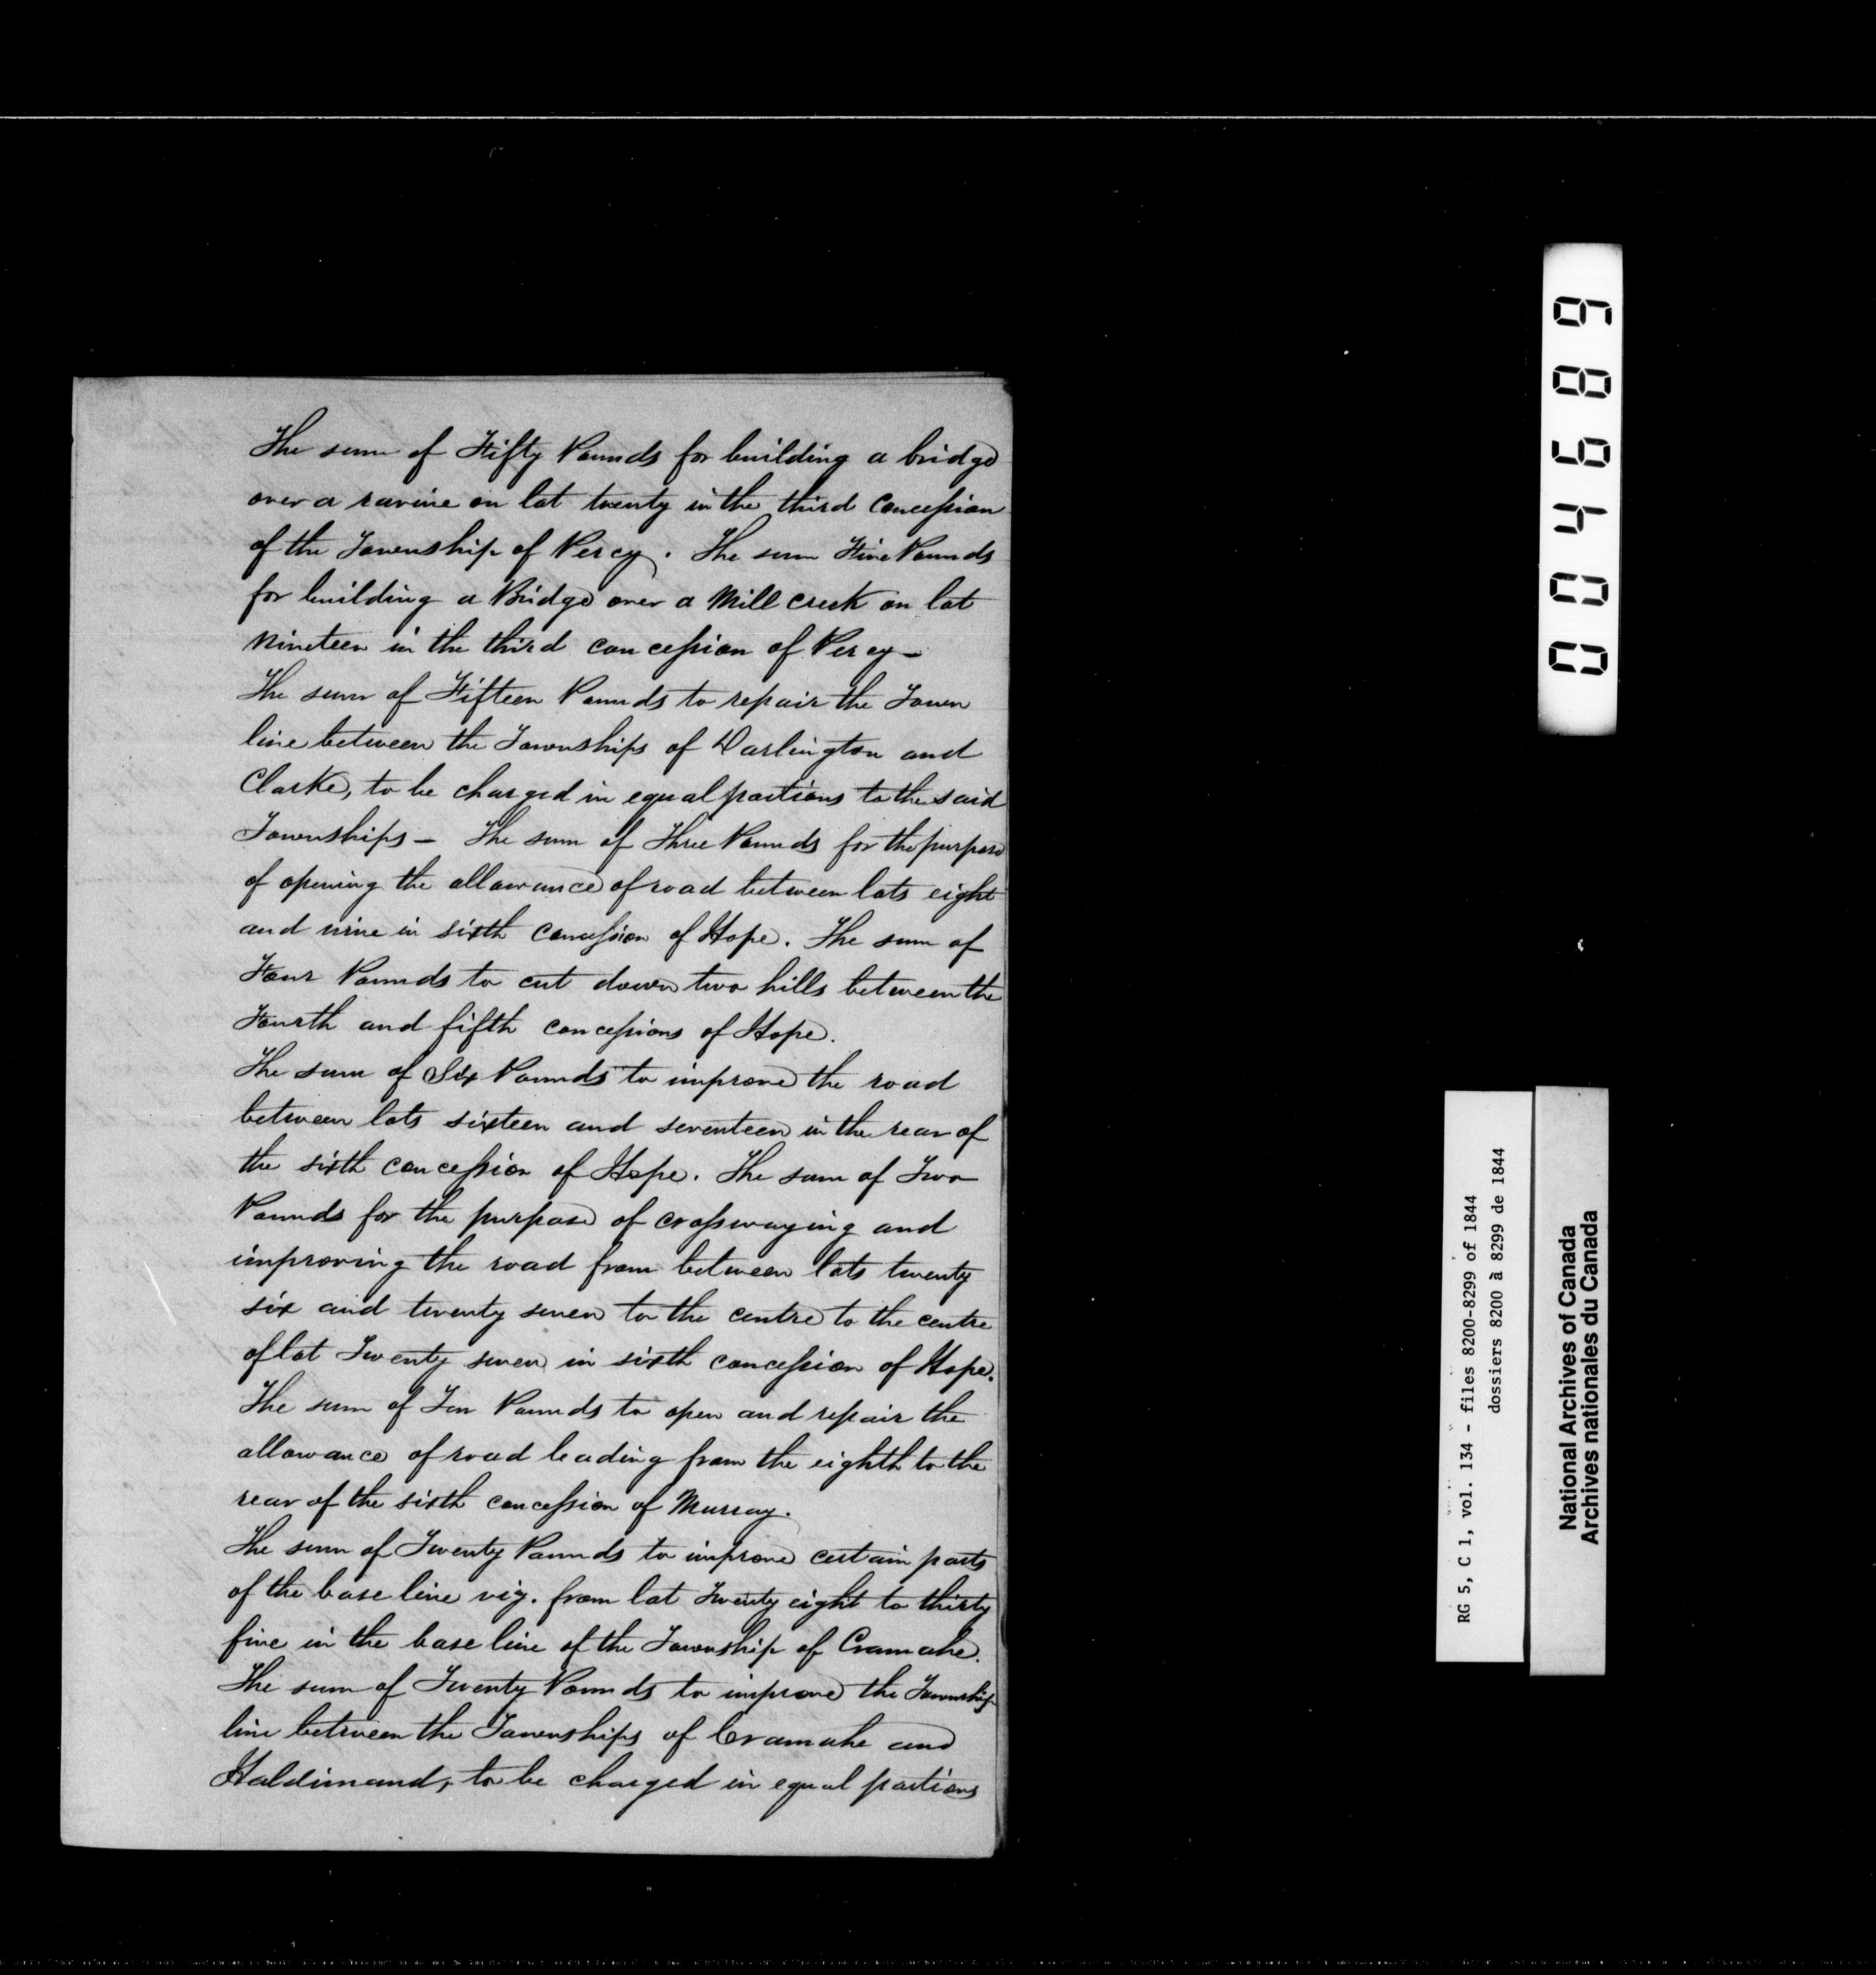 The sum of Fifty Pounds for building a bridge
over a ravine on lot twenty in the third Concession
of the Township of Percy. The sum Five Pounds
for building a Bridge over a Mill creek on lot
Nineteen in the third concession of Percy –
The sum of Fifteen Pounds to repair the Town
line between the Townships of Darlington and
Clarke, to be charged in equal portions to the said
Townships – The sum of Three Pounds for the purpose
of opening the allowance of road between lots eight
and nine in sixth Concession of Hope. The sum of
Four Pounds to cut down two hills between the
Fourth and fifth concessions of Hope.
The sum of Six Pounds to improve the road
between lots sixteen and seventeen in the rear of
the sixth concession of Hope. The sum of Two
Pounds for the purpose of crosswaying and
improving the road from between lots twenty
six and twenty seven to the centre to the centre
of lot Twenty seven in sixth concession of Hope.
The sum of Ten Pounds to open and repair the
allowance of road leading from the eighth to the
rear of the sixth concession of Murray.
The sum of Twenty Pounds to improve certain parts
of the base line viz. from lot Twenty eight to thirty
five in the base line of the Township of Cramahe.
The sum of Twenty Pounds to improve the Township
line between the Townships of Cramahe and
Haldimand, to be charged in equal portions
004689
RG 5, C 1, vol. 134 - files 8200-8299 of 1844
dossiers 8200 à 8299 de 1844
National Archives of Canada
Archives nationales du Canada